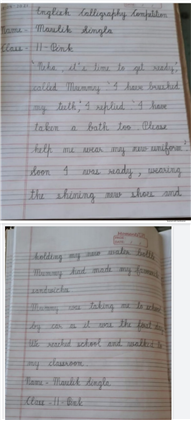 English Calligraphy Competition
Name - Maulik Singla
Class - II-Pink
"Wake, it's time to get ready,"
called Mummy. "I have brushed
my teeth," I replied. "I have
taken a bath too. Please
help me wear my new uniform."
Soon I was ready, wearing
the shining new shoes and
holding my new water bottle.
Mummy had made my favourite
sandwiches.
Mummy was taking me to school
by car as it was the first day.
We reached school and walked to
my classroom.
Name - Maulik Singla
Class - II-Pink